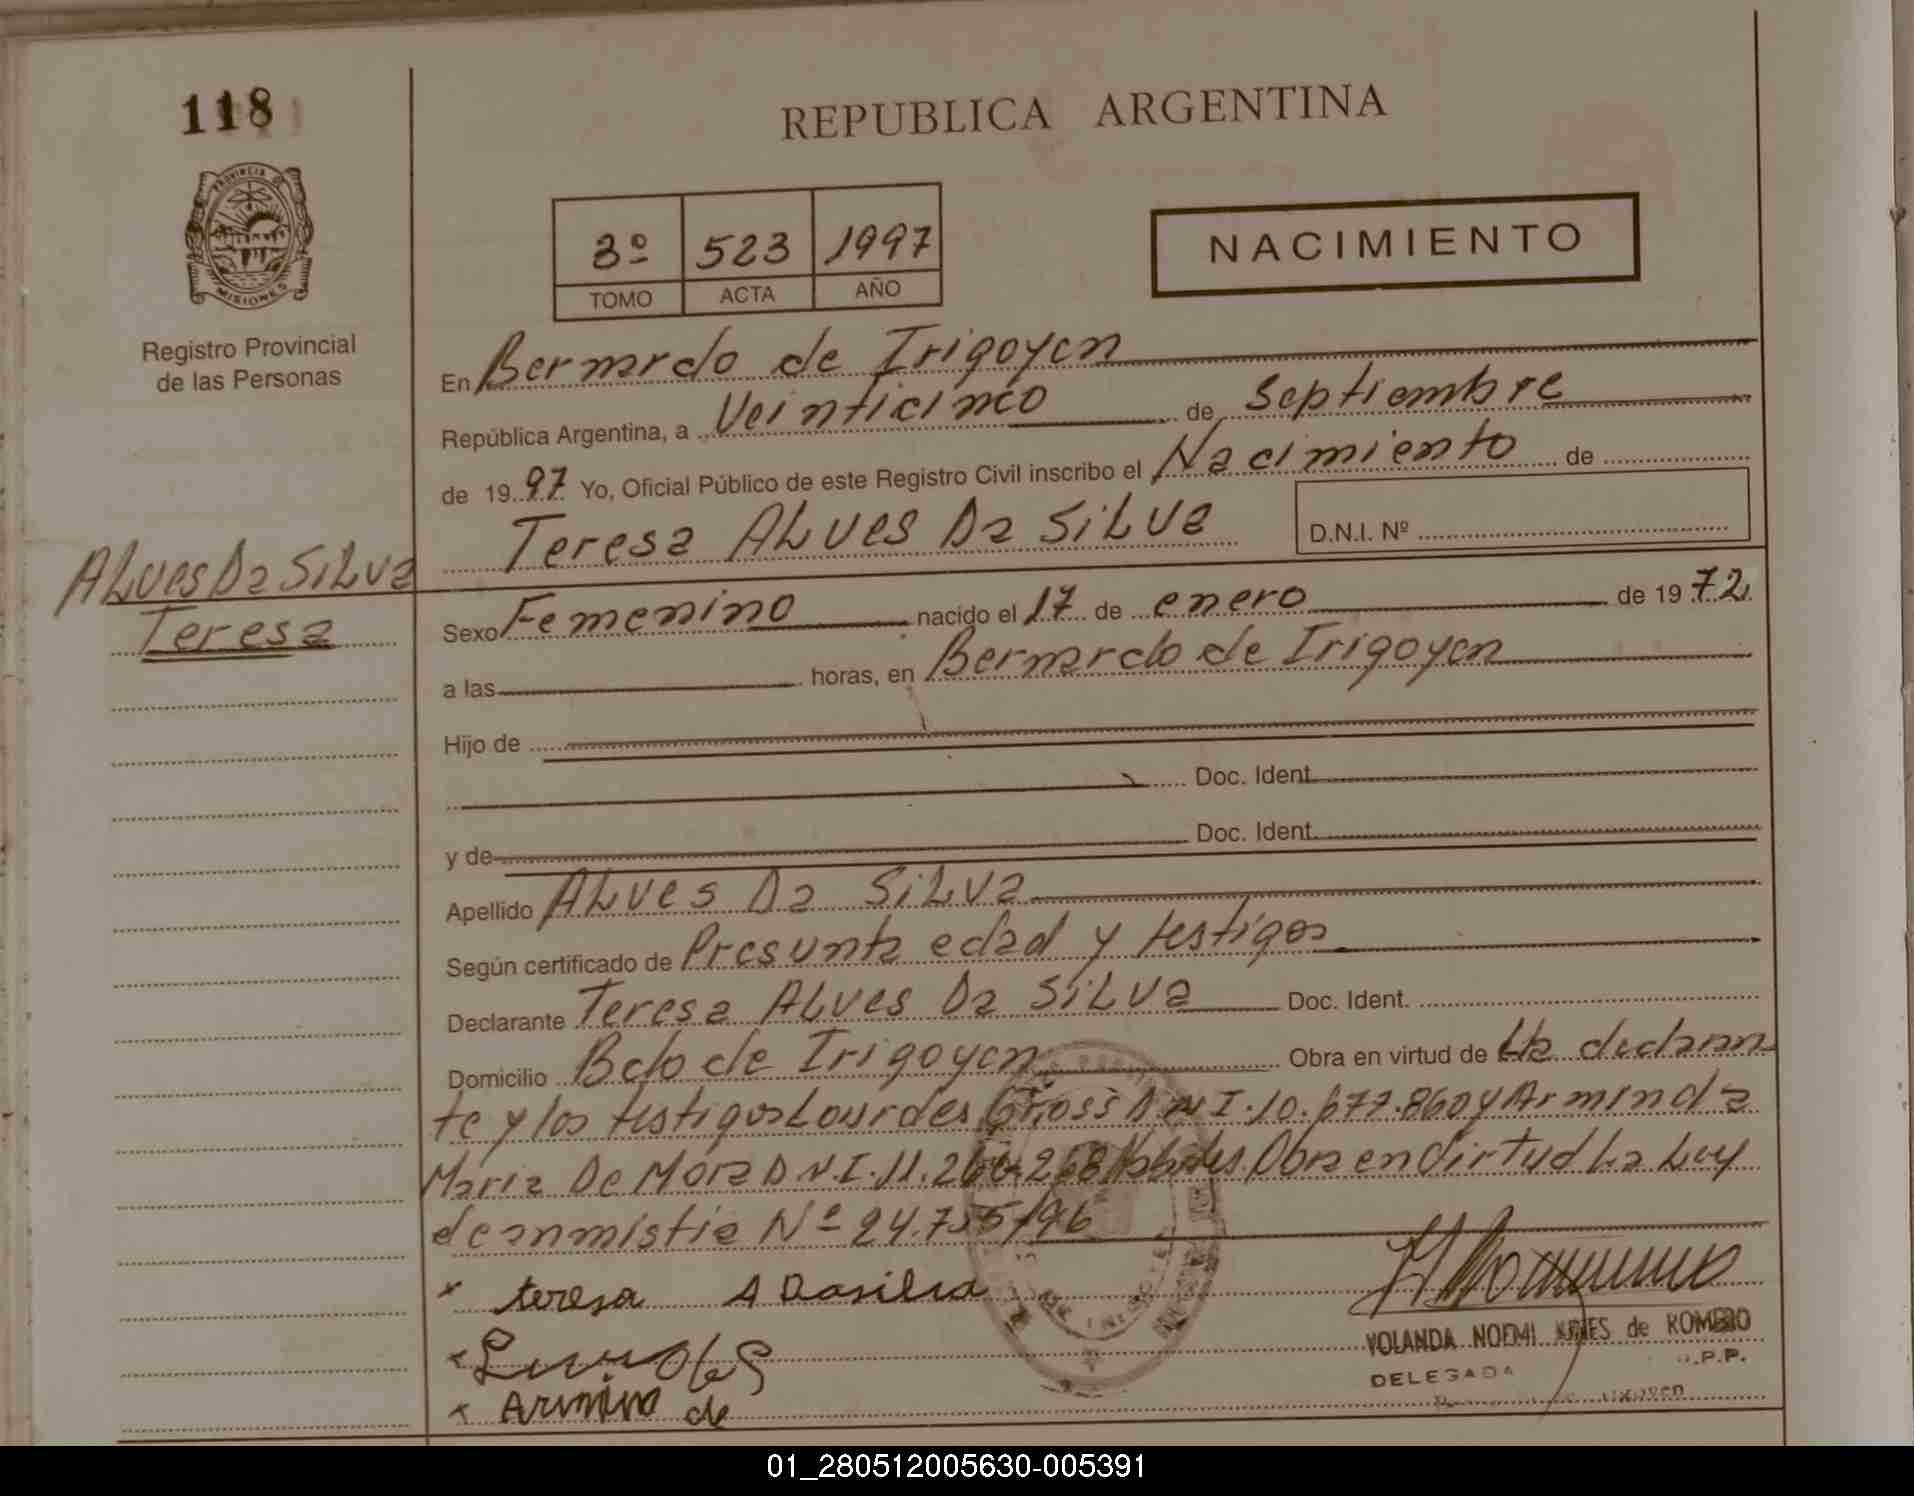 118
REPUBLICA ARGENTINA
PROVINCIA DE
MISIONES
Registro Provincial
de las Personas
3º 523 1997
TOMO ACTA AÑO
NACIMIENTO
En Bernardo de Irigoyen
República Argentina, a Veinticinco de Septiembre
de 1997 Yo, Oficial Público de este Registro Civil inscribo el Nacimiento de
Teresa ALves Da SiLva D.N.I. Nº
ALves Da SiLva
Teresa
Sexo Femenino nacido el 17 de enero de 1972
a las horas, en Bernardo de Irigoyen
Hijo de
Doc. Ident.
y de Doc. Ident.
Apellido ALves Da SiLva
Según certificado de Presunta edad y testigos
Declarante Teresa ALves Da SiLva Doc. Ident.
Domicilio Bdo de Irigoyen Obra en virtud de La declaran
te y los testigos Lourdes Gross D.N.I. 10.677.860 y Arminda
Maria De Mora D.N.I. 11. Habiles Obra en Virtud La Ley
de anmistia Nº 24.755/96
x teresa A Dasilva
x
x Arminda de
YOLANDA NOEMI de ROMERO
DELEGADA R.P.P.
01_280512005630-005391